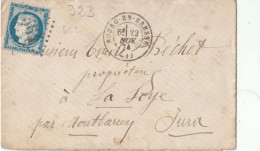 323
BOURG-EN-BRESSE
22
NOV.
Monsieur Emile Béchet
propriétaire
à La Loye
par Montbarrey Jura